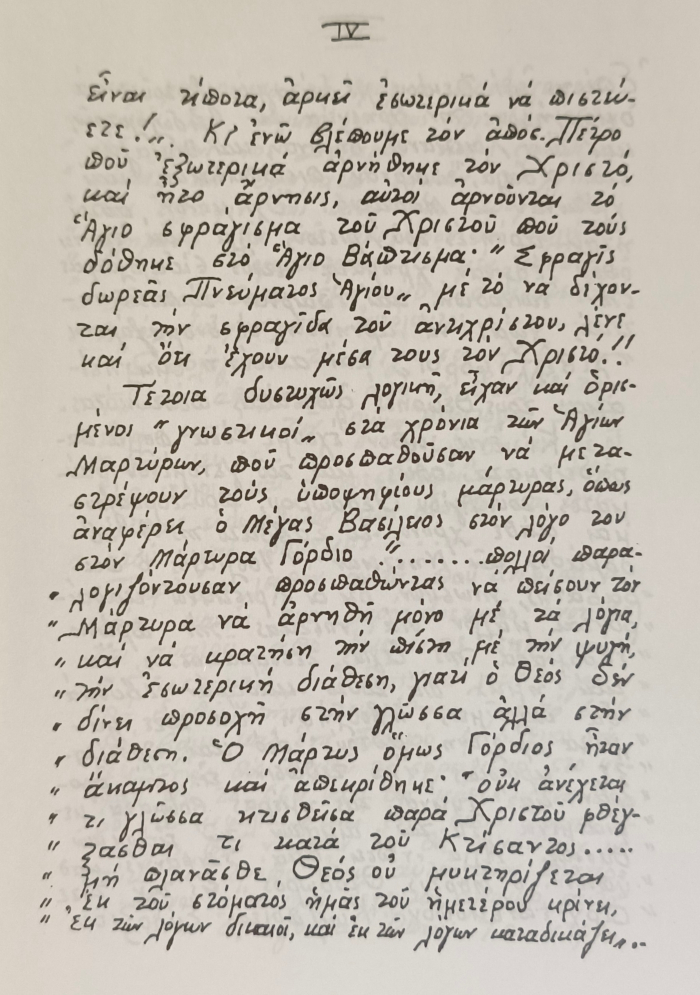 IV
εἶναι τίποτα, ἀρκεῖ ἐσωτερικά νά πιστεύ-
ετε!„. Κι ἐνῶ βλέπουμε τόν ἀπόσ. Πέτρο
πού ἐξωτερικά ἀρνήθηκε τόν Χριστό,
καί ἦτο ἄρνησις, αὐτοί ἀρνοῦνται τό
Ἅγιο σφράγισμα τοῦ Χριστοῦ πού τούς
δόθηκε στό Ἅγιο Βάπτισμα· “Σφραγίς
δωρεᾶς Πνεύματος Ἁγίου„ μέ τό νά δέχον-
ται τήν σφραγῖδα τοῦ ἀντιχρίστου, λένε
καί ὅτι ἔχουν μέσα τους τόν Χριστό!!
Τέτοια δυστυχῶς λογική, εἶχαν καί ὁρισ-
μένοι “γνωστικοί„ στά χρόνια τῶν Ἁγίων
Μαρτύρων, πού προσπαθοῦσαν νά μετα-
στρέψουν τούς ὑποψηφίους μάρτυρας, ὅπως
ἀναφέρει ὁ Μέγας Βασίλειος στόν λόγο του
στόν Μάρτυρα Γόρδιο “........πολλοί παρα-
“ λογιζόντουσαν προσπαθῶντας νά πείσουν τόν
“ Μάρτυρα νά ἀρνηθῆ μόνο μέ τά λόγια,
“ καί νά κρατήση τήν πίστη μέ τήν ψυχή,
“ τήν ἐσωτερική διάθεση, γιατί ὁ Θεός δέν
“ δίνει προσοχή στήν γλῶσσα ἀλλά στήν
“ διάθεση. Ὁ Μάρτυς ὅμως Γόρδιος ἦταν
“ ἄκαμπτος καί ἀπεκρίθηκε· “οὐκ ἀνέχεται
“ τι γλῶσσα κτισθεῖσα παρά Χριστοῦ φθέγ-
“ ξασθαι τι κατά τοῦ Κτίσαντος.....
“ Μή πλανᾶσθε, Θεός οὐ μυκτηρίζεται
“ Ἐκ τοῦ στόματος ἡμᾶς τοῦ ἡμετέρου κρίνει,
“ Ἐκ τῶν λόγων δικαιοῖ, καί ἐκ τῶν λόγων καταδικάζει„..